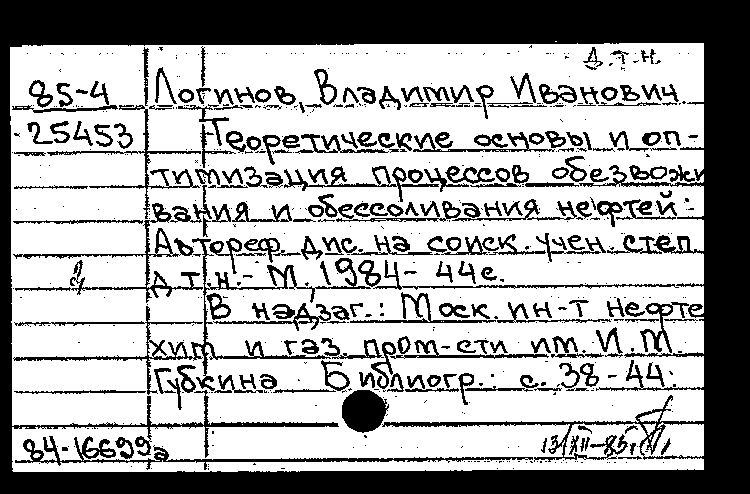 д.т.н.
85-4 Логинов, Владимир Иванович
25453 Теоретические основы и оп-
тимизация процессов обезвожи
вания и обессоливания нефтей:
Автореф. дис. на соиск. учен. степ
д.т.н.- М., 1984- 44с.
В надзаг.: Моск. ин-т нефте
хим и газ. пром-сти им. И.М.
Губкина Библиогр.: с. 38-44.
84-16699а 13/XII-85г.